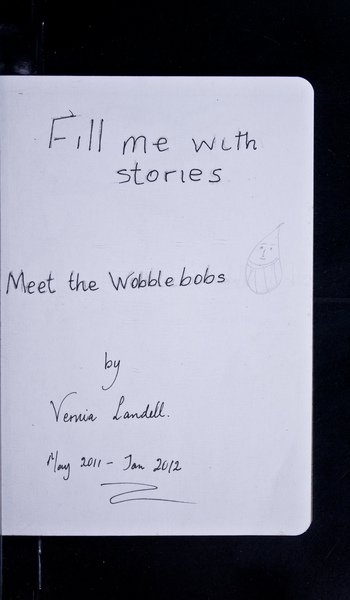 Fill me with
stories
Meet the Wobblebobs
by
Vernia Landell.
May 2011 - Jan 2012